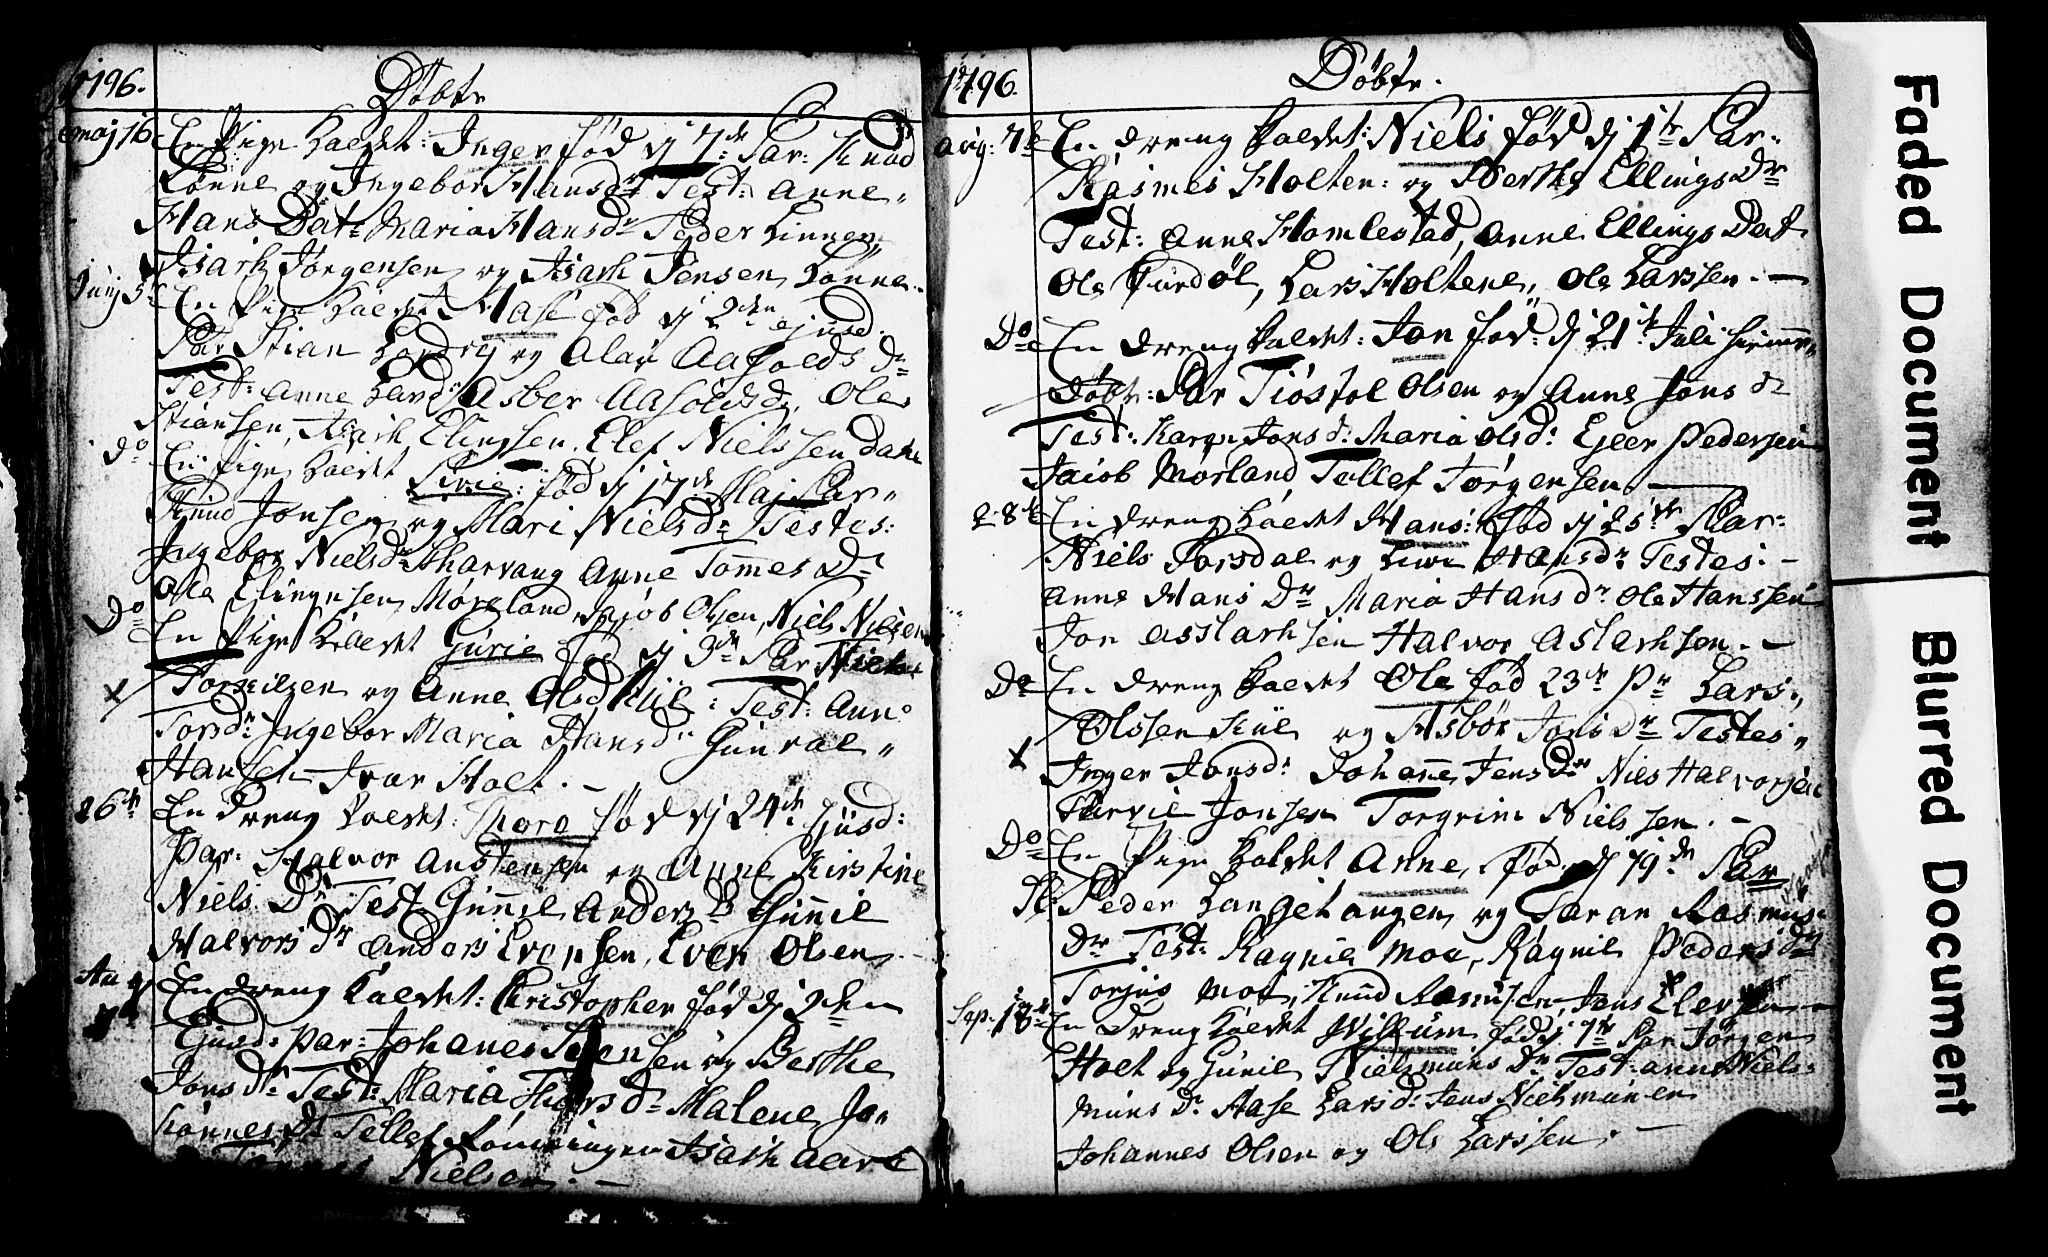 1796.
Døbte
maj 16 En Pige kaldet: Inger fød dj 7de Par: Knud
Lønne og Ingebor Hansdr Test: Anne
Hans Datr Maria Hansdr Peder Linnes
Isach Jørgensen og Isach Jensen Lønne.
Junj 5te En Pige kaldet Aase fød dj 2den ejusd.
Par Stian og Alav Aasolds dr
Test: Anne Asber Aasolds dr Ole
Stiansen, Isach Elingsen, Elef Nielssen Dahl
Do En Pige kaldet Sirie: fød dj 17de Maj Par
Knud Jonsen og Mari Nielsdr Testes:
Ingebor Nielsdr Anne Tommes Dr
Ole Elingnsen Møreland Jacob Olsen, Niels Nielsen
Do En Pige kaldet Gurie fød dj 3de Par Niels
Torgilsen og Anne Olsd Test: Anne
Torsdr Ingebor Maria Hansdr Gunval
Hansen Ivar Holt. -
26de En Dreng kaldet: Thore fød dj 24de hjusd:
Par: Halvor Anstensen og Anne Kirstine
Niels Dr Test Gunnil Anders D Gunnil
Halvors Dr Anders Evensen, Even Olsen
Aug En dreng kaldet: Christopher fød dj 2den
Ejusd: Par: Johanes og Berthe
Jons dr Test: Maria dr Malene Jo-
hannes Dr Tellef Rønningen Isach Aare
Nielsen. -
1796.
Døbte.
aug: 7de En dreng kaldet: Niels fød dj 1te Par:
Rasmus Holten: og Berthe Ellings Dr
Test: Anne Homlestad, Anne Ellings Dat
Ole Furdøl, Lars Holtene, Ole Larssen. -
Do En dreng kaldet: Jon fød: dj 21de Juli hiemme
Døbt: Par Tiøstol Olsen og Anne Jons d
Test: Karen Jons dr Maria Ols dr Ejeer Pedersen
Jacob Mørland Tellef Jørgensen
28de En dreng kaldet Hans: fød dj 25de Par:
Niels Torsdal og Live Hansdr Testes:
Anne Hans Dr Maria Hans dr Ole Hanssen
Jon Asslachsen Halvor Aslachsen. -
Do En dreng kaldet Ole fød 23de Pr Lars
Olssen Kiil og Asbør Jons Dr Testes
Inger Jonsdr Johanne Jens Dr Niels Halvorsen
Tarvil Jonsen Torgrim Nielssen. -
Do En Pige kaldet Anne, fød dj 19de Par
Peder Langehaugen og Taran Rasmus
Dr Test: Ragnil Moe, Ragnil Peders Dr
Torjus Moe, Knud Rasmusen, Jens Elefsen
Sep: 18de En Dreng kaldet Wilhum fød dj 7de Par Jørgen
Holt og Gunil Nielsmuns Dr Test: Anne Niels-
muns dr Aase Lars dr Jens Nielsmunsen
Johannes Olsen og Ole Larssen. -
Faded Document
Blurred Document